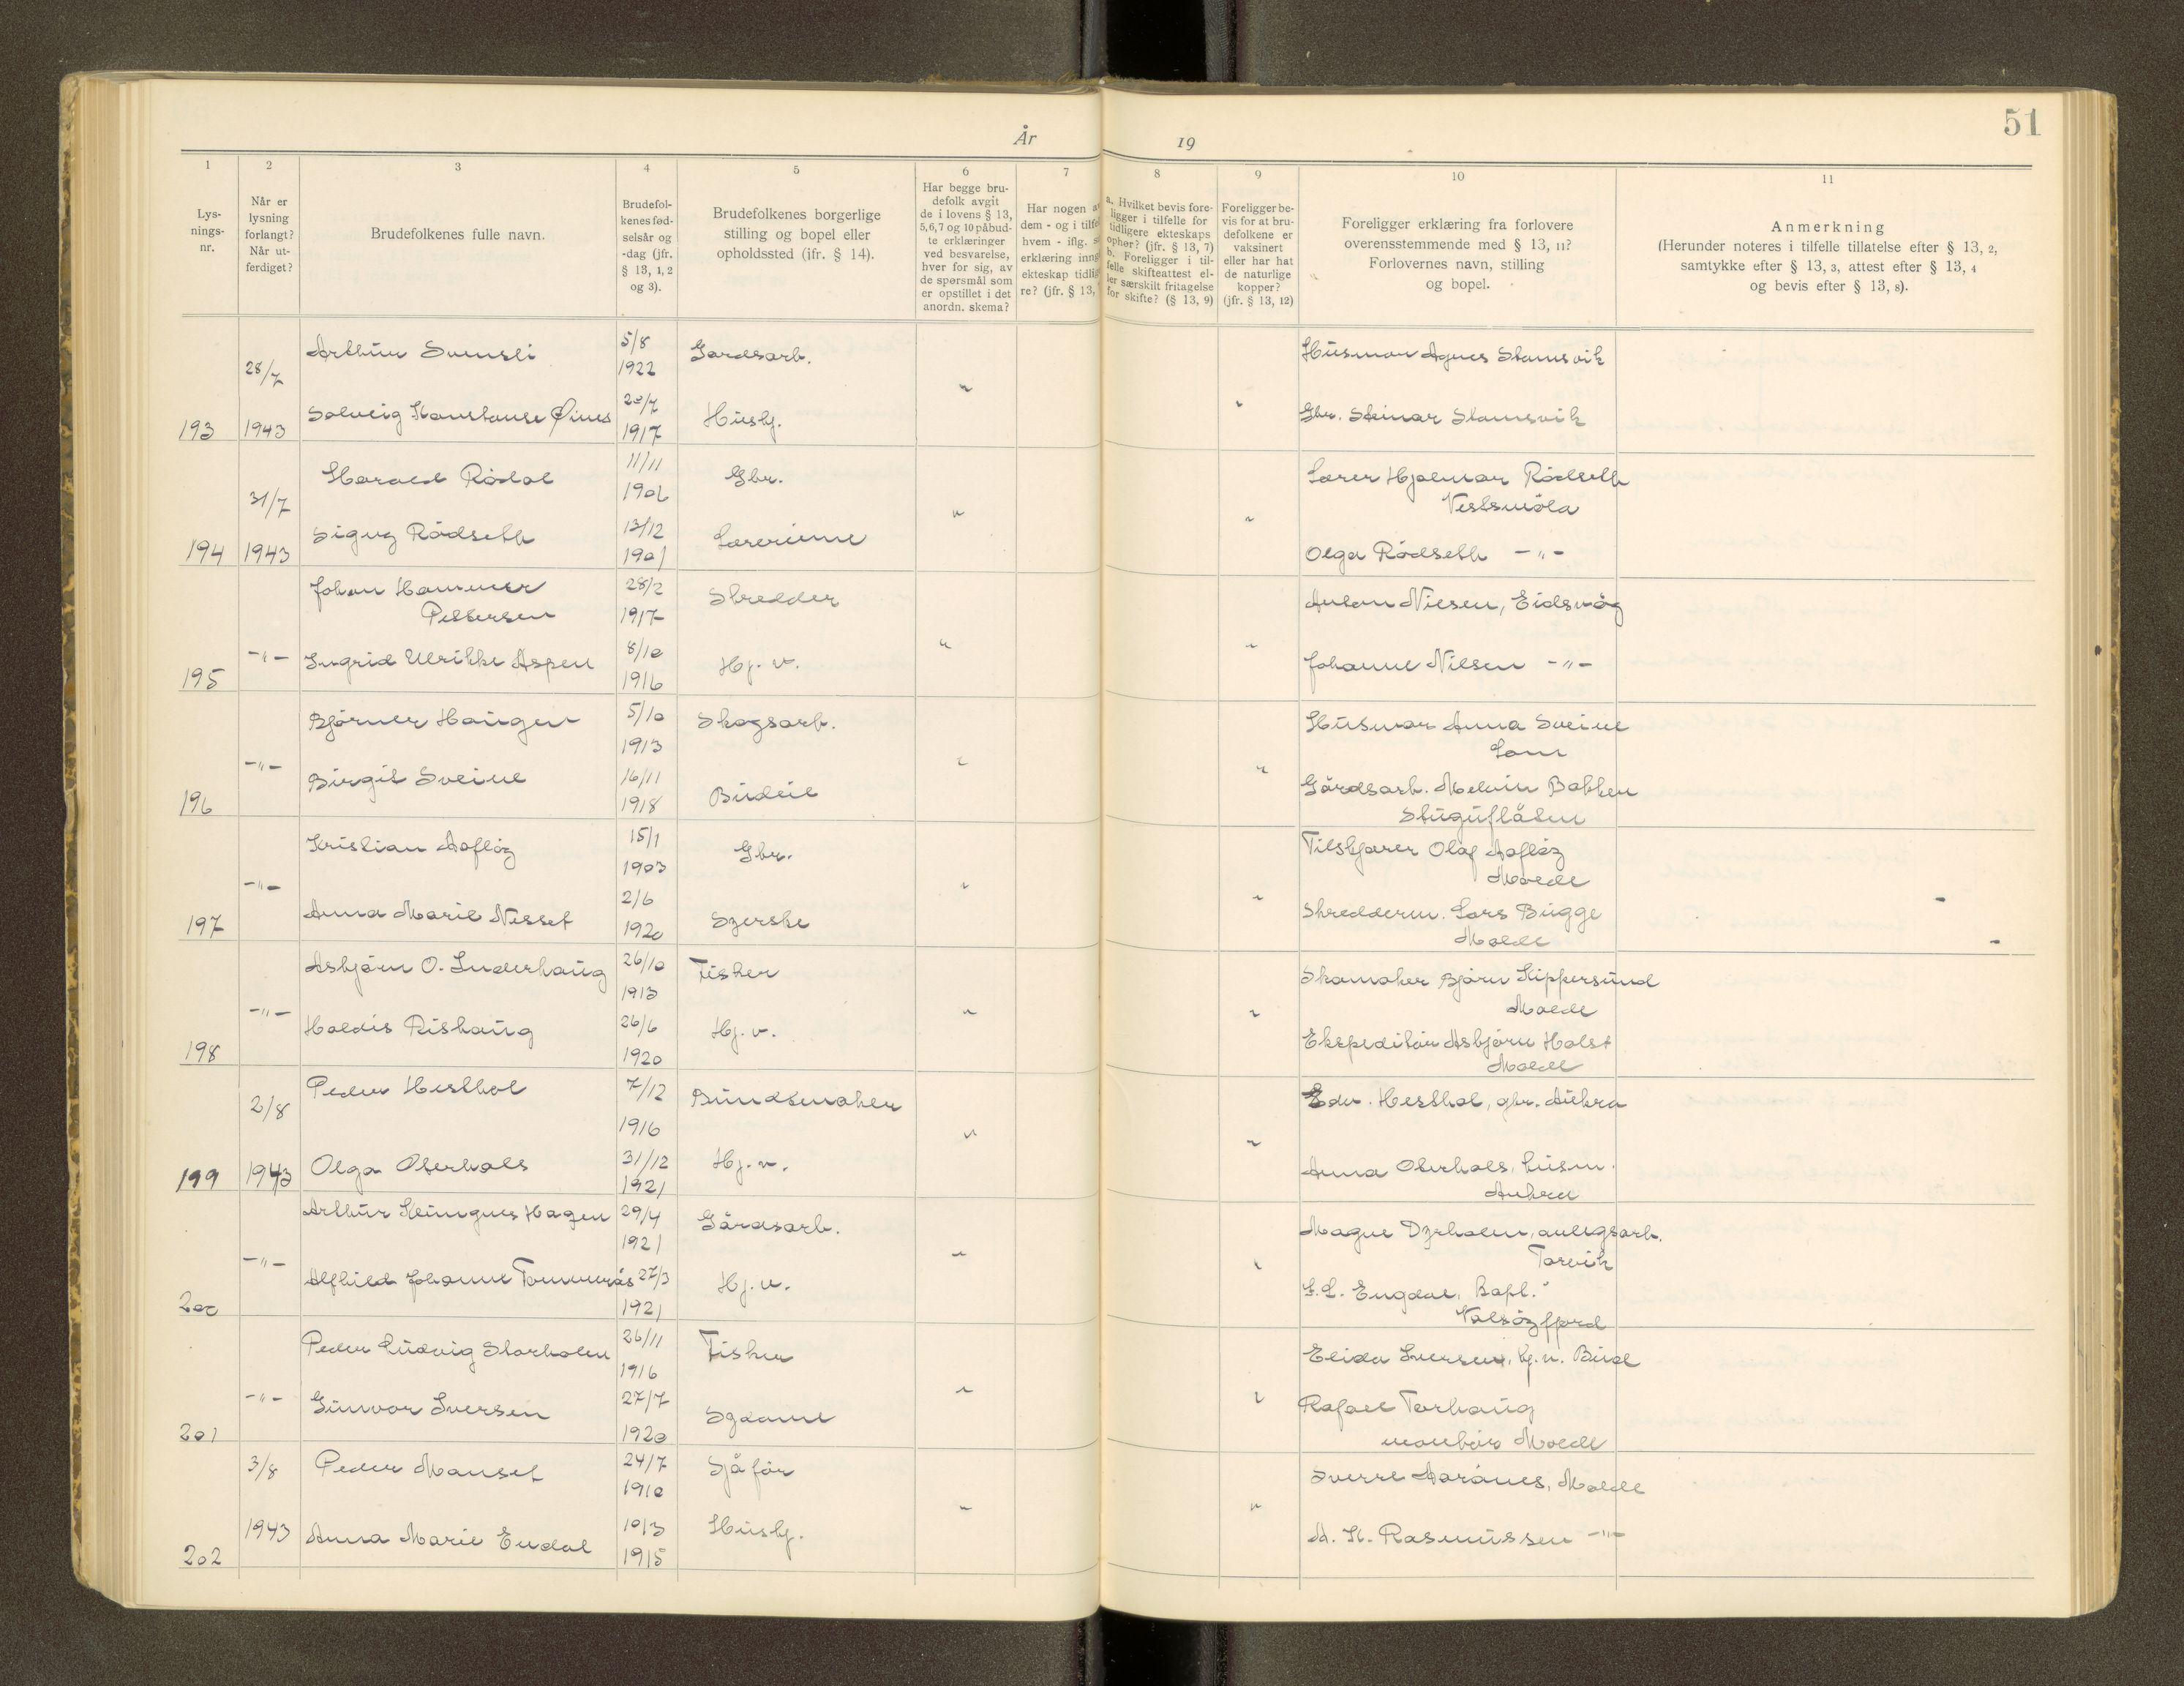 51
År 19
1 2 3 4 5 6 7 8 9 10 11
Lys-
nings-
nr.
Når er
lysning
forlangt?
Når ut-
ferdiget?
Brudefolkenes fulle navn.
Brudefol-
kenes fød-
selsår og
-dag (jfr.
§ 13, 1, 2
og 3).
Brudefolkenes borgerlige
stilling og bopel eller
opholdssted (ifr. § 14).
Har begge bru-
defolk avgit
de i lovens § 13,
5,6,7 og 10 påbud-
te erklæringer
ved besvarelse,
hver for sig, av
de spørsmål som
er opstillet i det
anordn. skema?
Har nogen a
dem - og i tilfe
hvem - iflg.
erklæring inng
ekteskap tidlig
re? (jfr. § 13,
a. Hvilket bevis fore-
ligger i tilfelle for
tidligere ekteskaps
opher? (jfr. § 13, 7)
b. Foreligger i til-
felle skifteattest el-
ler særskilt fritagelse
for skifte? (§ 13, 9)
Foreligger be-
vis for at bru-
defolkene er
vaksinert
eller har hat
de naturlige
kopper?
(jfr. § 13, 12)
Foreligger erklæring fra forlovere
overensstemmende med § 13, 11?
Forlovernes navn, stilling
og bopel.
Anmerkning
(Herunder noteres i tilfelle tillatelse efter § 13, 2,
samtykke efter § 13, 3, attest efter § 13, 4
og bevis efter § 13, 8).
28/7 Arthur Svensli 5/8 1922 Gardsarb. Husmor Agnes Stamsvik
193 1943 Solveig Konstanse Øines 20/7 1917 Hush. Gbr. Steinar Stamsvik
31/7 Harald Rødal 11/11 1906 Gbr. Lærer Hjalmar Rødseth
Vestsmøla
194 1943 Signy Rødseth 13/12 1901 Lærerinne Olga Rødseth -"-
Johan Hammer 28/2 Skredder Anton Nilsen, Eidsvåg
Pettersen 1917
195 -"- Ingrid Ulrikke Aspen 8/10 1916 Hj. v. Johanne Nilsen -"-
Bjørner Haugen 5/10 1913 Skogsarb. Husmor Anna Sveine
Lom
196 -"- Birgit Sveine 16/11 1918 Budeie Gårdsarb. Melvin Bakken
Stuguflåten
Kristian Aafløy 15/1 1903 Gbr. Tilskjærer Olaf Aafløy
Molde
197 -"- Anna Marie Nesset 2/6 1920 Syerske Skredderm. Lars Bugge
Molde
Asbjørn O. Inderhaug 26/10 1913 Fisker Skomaker Bjørn Kippersund
Molde
198 -"- Haldis Rishaug 26/6 1920 Hj. v. Ekspeditør Asbjørn Holst
Molde
2/8 Peder Hesthol 7/12 1916 Bundtmaker Edv. Hesthol, gbr. Aukra
199 1943 Olga Oterhals 31/12 1921 Hj. v. Anna Oterhals, husm.
Aukra
Arthur Hagen 29/4 1921 Gårdsarb. Magne Dyrholm, anlegsarb.
Torvik
200 -"- Alfhild Johanne Tommerås 27/3 1921 Hj. v. L. Engdal, Kapt.
Valsøyfjord
Peder Ludvig Storholm 26/11 1916 Fisker Elida Iversen, hj. v. Bud
201 -"- Gunvor Iversen 27/7 1920 Sydame Rafael Torhaug
montør Molde
3/8 Peder Manset 24/7 1910 Sjåfør Sverre Aarånes, Molde
202 1943 Anna Marie Eudal 10/3 1915 Hush. M. K. Rasmussen -"-